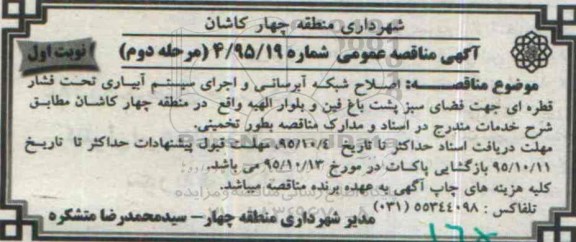 شهرداری منطقه چهار کاشان
آگهی مناقصه عمومی شماره ۴/۹۵/۱۹ (مرحله دوم)
نوبت اول
موضوع مناقصه: اصلاح شبکه آبرسانی و اجرای سیستم آبیاری تحت فشار
قطره ای جهت فضای سبز پشت باغ فین و بلوار الهیه واقع در منطقه چهار کاشان مطابق
شرح خدمات مندرج در اسناد و مدارک مناقصه بطور تخمینی.
مهلت دریافت اسناد حداکثر تا تاریخ ۹۵/۱۰/۴، مهلت قبول پیشنهادات حداکثر تا تاریخ
۹۵/۱۰/۱۱ بازگشایی پاکات در مورخ ۹۵/۱۰/۱۳ می باشد.
کلیه هزینه های چاپ آگهی به عهده برنده مناقصه میباشد.
تلفاکس: ۵۵۳۴۴۰۹۸ (۰۳۱)
مدیر شهرداری منطقه چهار– سیدمحمدرضا متشکره